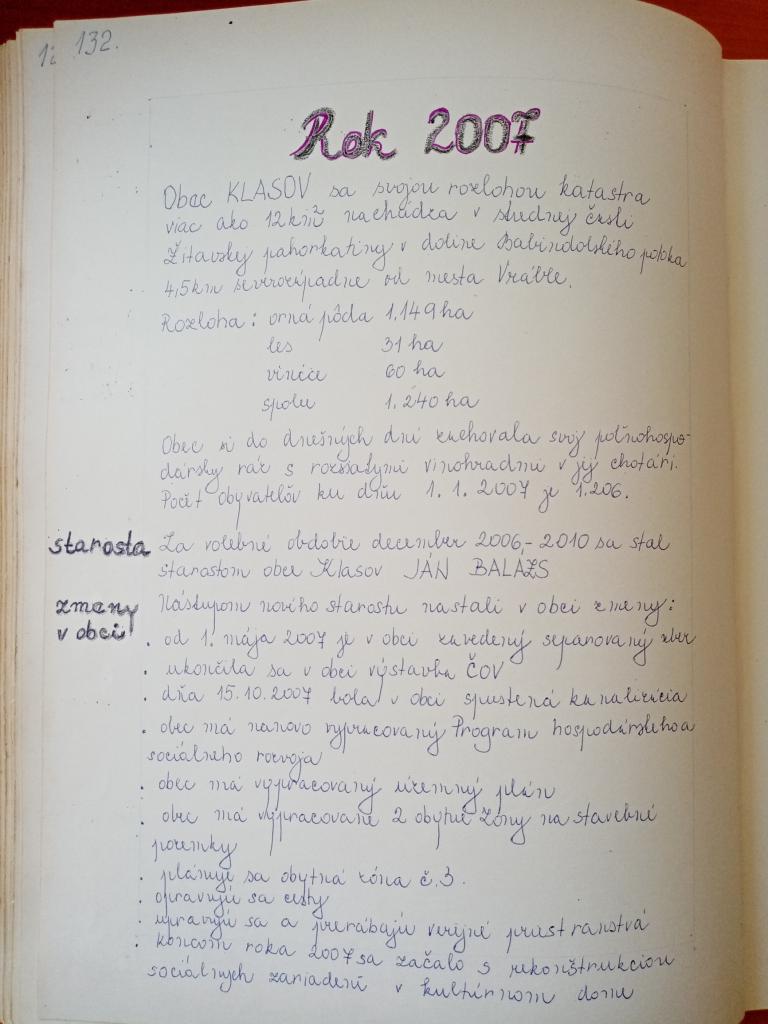 132.
Rok 2007
Obec KLASOV sa svojou rozlohou katastra
viac ako 12 km² nachádza v strednej časti
Žitavskej pahorkatiny v doline Babindolského potoka
4,5km severozápadne od mesta Vráble.
Rozloha: orná pôda 1.149 ha
les 31 ha
vinice 60 ha
spolu 1.240 ha
Obec si do dnešných dní zachovala svoj poľnohospo-
dársky ráz s rozsiatymi vinohradmi v jej chotári.
Počet obyvateľov ku dňu 1.1.2007 je 1.206.
starosta Za volebné obdobie december 2006,-2010 sa stal
starostom obce Klasov JÁN BALAZS
zmeny v obci
Nástupom nového starostu nastali v obci zmeny:
. od 1. mája 2007 je v obci zavedený separovaný zber
. ukončila sa v obci výstavba ČOV
. dňa 15.10.2007 bola v obci spustená kanalizácia
. obec má nanovo vypracovaný Program hospodárskeho a
sociálneho rozvoja
. obec má vypracovaný územný plán
. obec má vypracované 2 obytné zóny na stavebné
pozemky
. plánuje sa obytná zóna č.3.
. opravujú sa cesty
. upravujú sa a prerábajú verejné priestranstvá
. koncom roka 2007 sa začalo s rekonštrukciou
sociálnych zariadení v kultúrnom dome